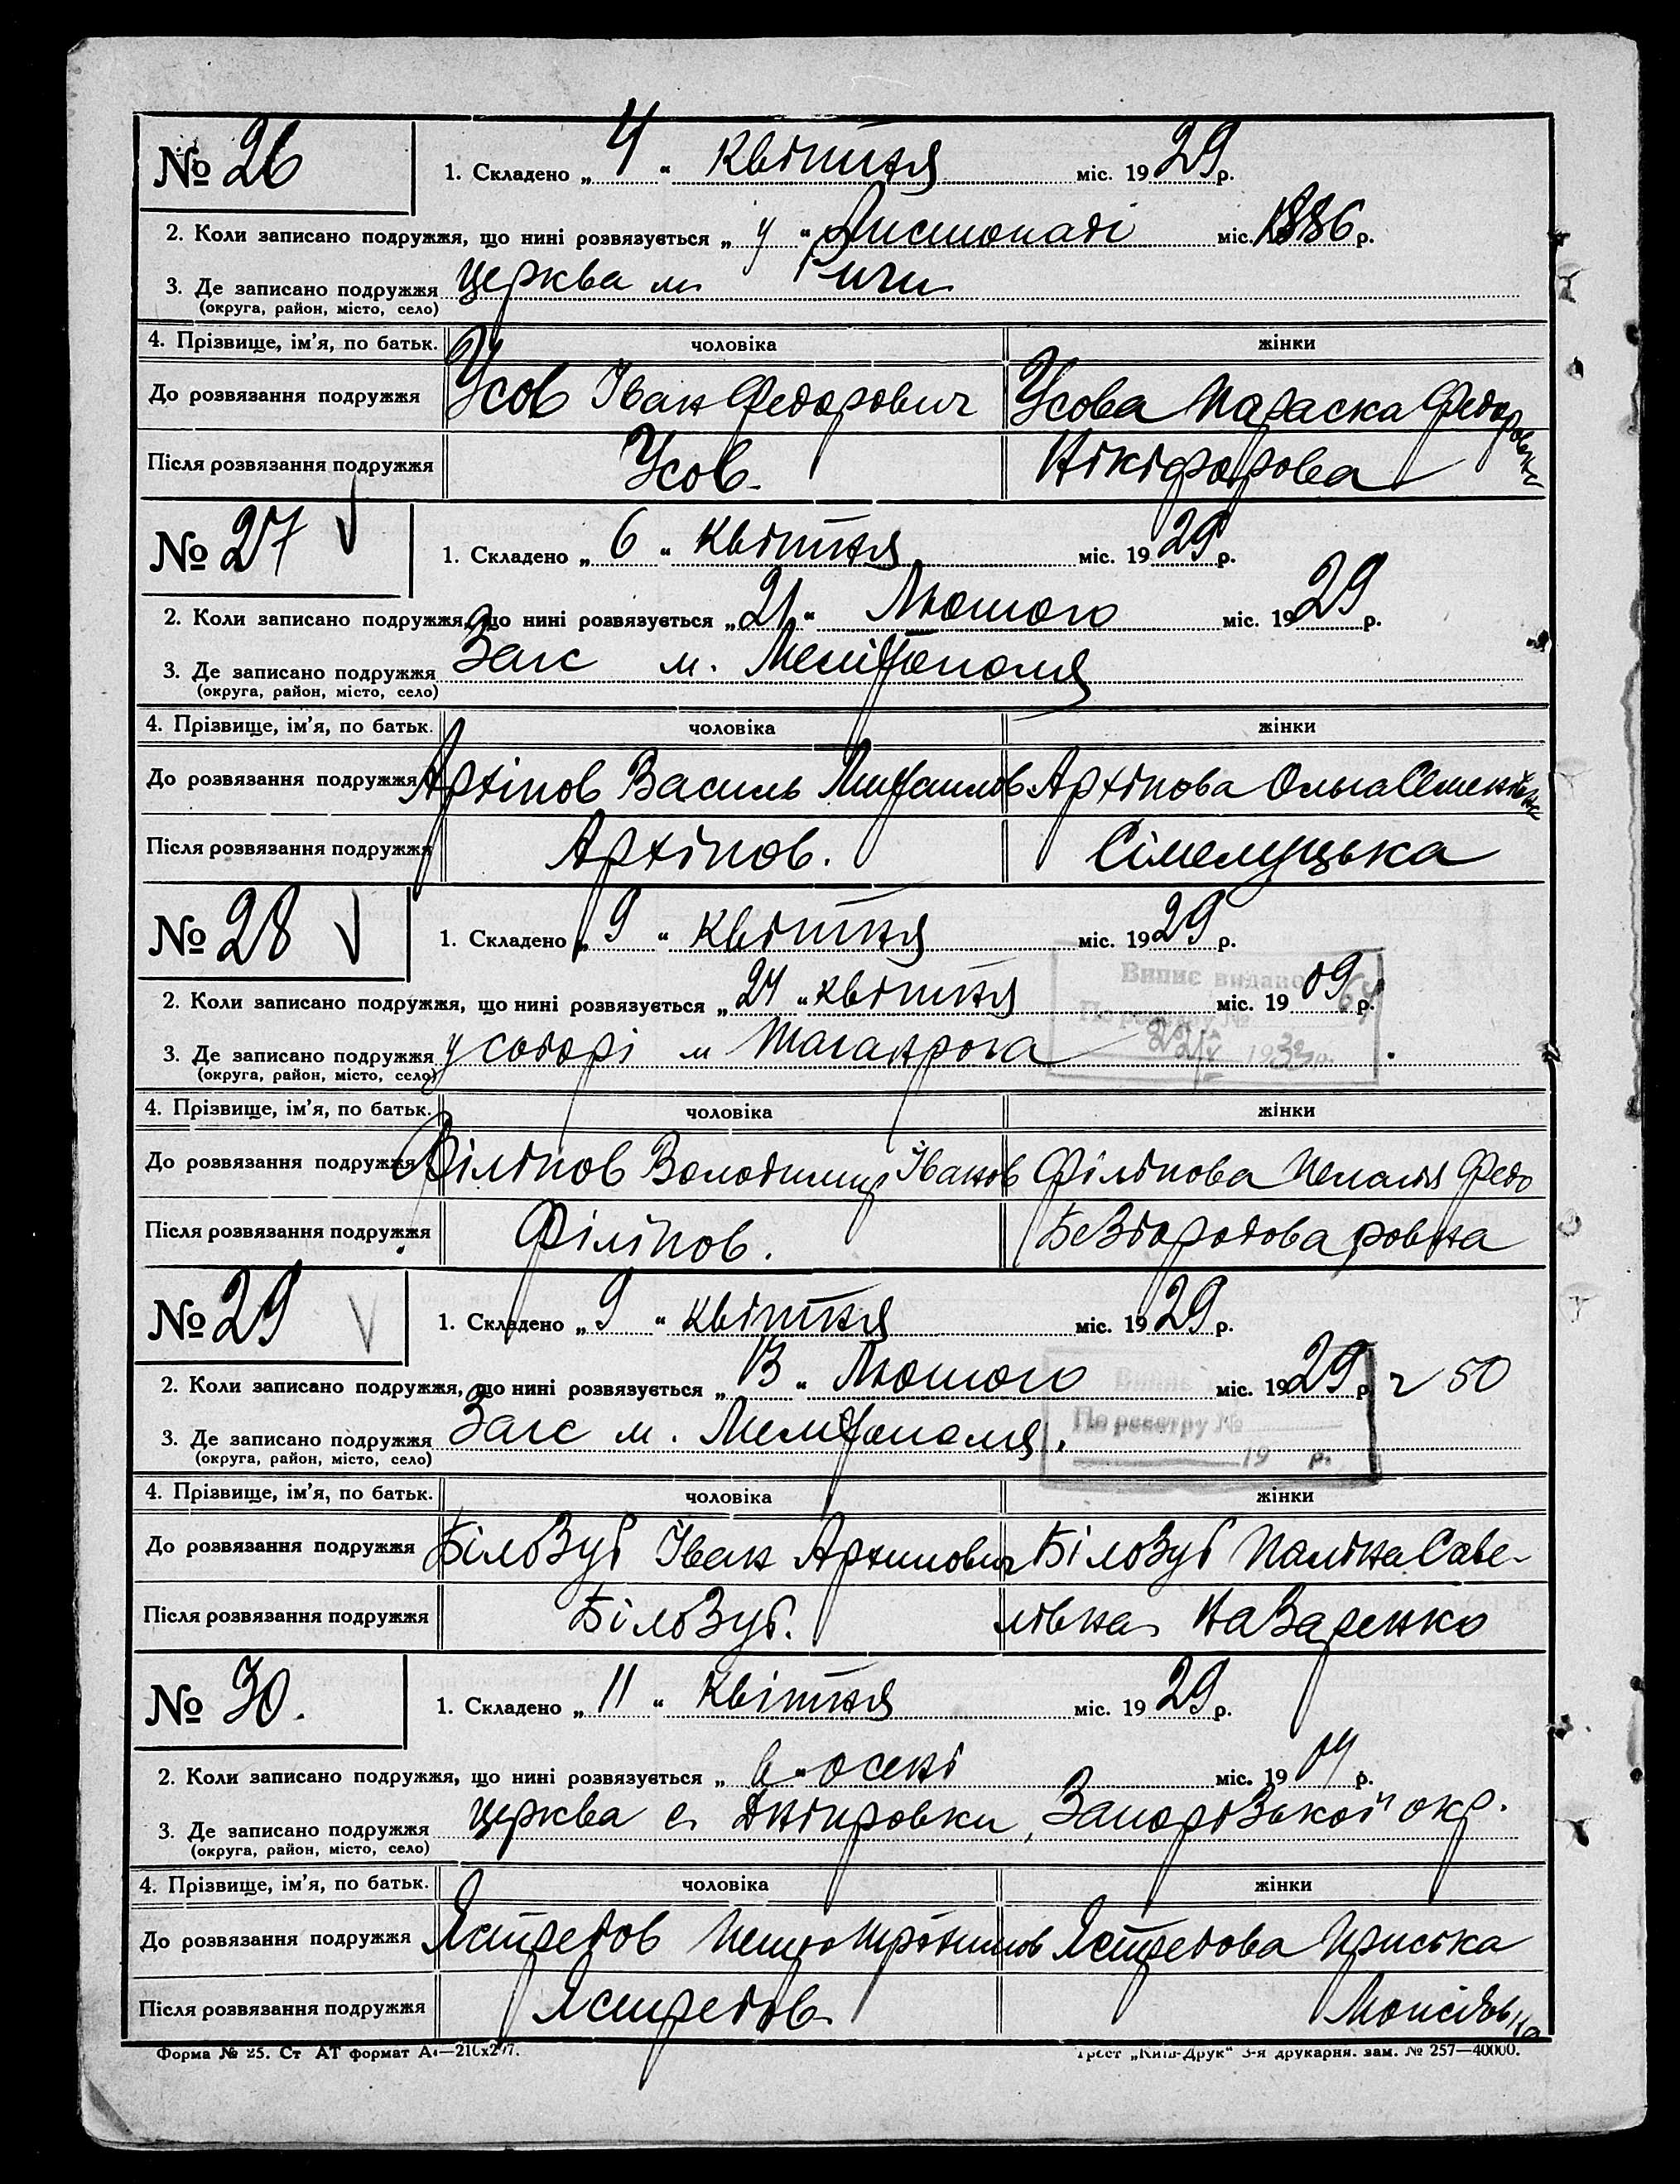 № 26
1. Складено „ 4 “ Квітня міс. 1929 р.
2. Коли записано подружжя, що нині розвязується „ у “ Листопаді міс. 1886 р.
3. Де записано подружжя церква м. Риги
(округа, район, місто, село)
4. Прізвище, ім’я, по батьк. чоловіка жінки
До розвязання подружжя Усов Іван Федорович Усова Параска Федоровна
Після розвязання подружжя Усов. Нікіфорова
№ 27 V
1. Складено „ 6 “ Квітня міс. 1929 р.
2. Коли записано подружжя, що нині розвязується „ 21 “ Лютого міс. 1929 р.
3. Де записано подружжя Загс м. Мелітополя
(округа, район, місто, село)
4. Прізвище, ім’я, по батьк. чоловіка жінки
До розвязання подружжя Архіпов Василь Михаилов Архіпова Ольга Семенівна
Після розвязання подружжя Архіпов. Сімелуцька
№ 28 V
1. Складено „ 9 “ Квітня міс. 1929 р.
Випис видано
2. Коли записано подружжя, що нині розвязується „ 24 “ квітня міс. 1909 р.
По реєстру №
3. Де записано подружжя у соборі м Таганрога
19 р.
(округа, район, місто, село)
4. Прізвище, ім’я, по батьк. чоловіка жінки
До розвязання подружжя Філіпов Володимир Іванов Філіпова Пелагія Федо
Після розвязання подружжя Філіпов. Безбородова ровна
№ 29 V
1. Складено „ 9 “ квітня міс. 1929 р.
Випис
2. Коли записано подружжя, що нині розвязується „ 13 “ Лютого міс. 1929 р. 2 50
По реєстру №
3. Де записано подружжя Загс м. Мелітополя.
19 р.
(округа, район, місто, село)
4. Прізвище, ім’я, по батьк. чоловіка жінки
До розвязання подружжя Білозуб Іван Архипович Білозуб Паліна Саве-
Після розвязання подружжя Білозуб. лівна Назаренко
№ 30.
1. Складено „ 11 “ Квітня міс. 1929 р.
2. Коли записано подружжя, що нині розвязується „ в “ осені міс. 1904 р.
3. Де записано подружжя церква с. Дніпровки, Запорізької окр.
(округа, район, місто, село)
4. Прізвище, ім’я, по батьк. чоловіка жінки
До розвязання подружжя Ястребов Петро Трохимов ЯстребоваПриська
Після розвязання подружжя Ястребов.
Форма № 25. Ст АТ формат А4—210х297.
Трест „Київ-Друк“ 3-я друкарня. зам. № 257—40000.